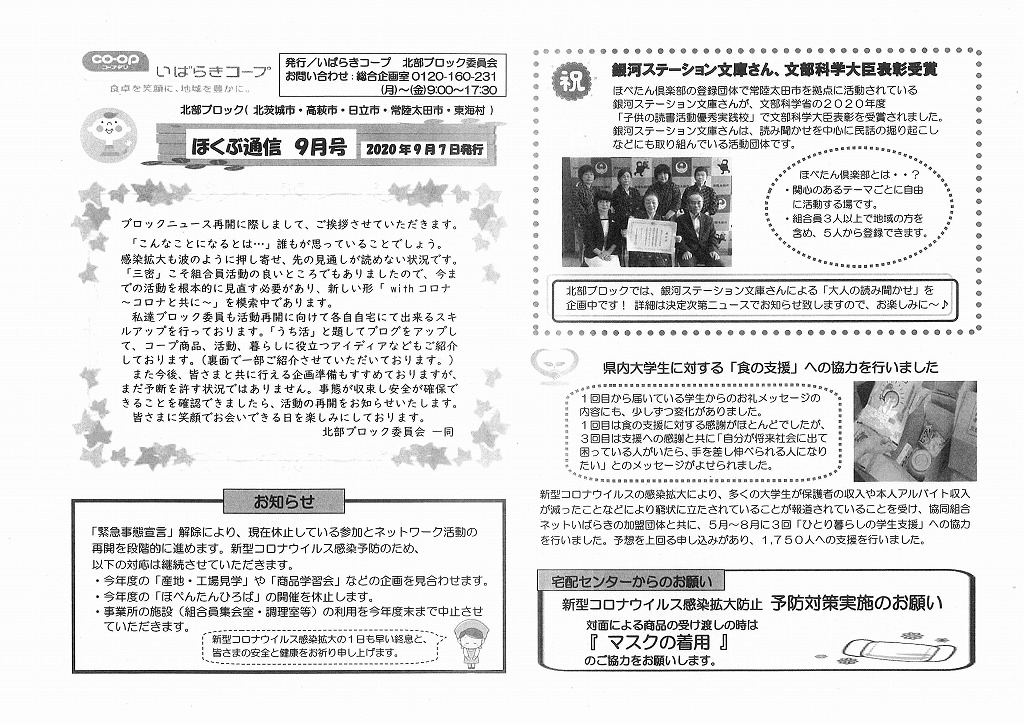 co-op
コープデリ
いばらきコープ
食卓を笑顔に、地域を豊かに。
発行／いばらきコープ　北部ブロック委員会
お問い合わせ：総合企画室 0120-160-231
(月)～(金)9:00～17:30
北部ブロック( 北茨城市・高萩市・日立市・常陸太田市・東海村 )
ほくぶ通信 9月号
2020年9月7日発行
ブロックニュース再開に際しまして、ご挨拶させていただきます。
「こんなことになるとは…」誰もが思っていることでしょう。
感染拡大も波のように押し寄せ、先の見通しが読めない状況です。
「三密」こそ組合員活動の良いところでもありましたので、今ま
での活動を根本的に見直す必要があり、新しい形「 with コロナ
～コロナと共に～」を模索中であります。
私達ブロック委員も活動再開に向けて各自自宅にて出来るスキ
ルアップを行っております。「うち活」と題してブログをアップし
て、コープ商品、活動、暮らしに役立つアイディアなどもご紹介
しております。（裏面で一部ご紹介させていただいております。）
また今後、皆さまと共に行える企画準備もすすめておりますが、
まだ予断を許す状況ではありません。事態が収束し安全が確保で
きることを確認できましたら、活動の再開をお知らせいたします。
皆さまに笑顔でお会いできる日を楽しみにしております。
北部ブロック委員会 一同
お知らせ
「緊急事態宣言」解除により、現在休止している参加とネットワーク活動の
再開を段階的に進めます。新型コロナウイルス感染予防のため、
以下の対応は継続させていただきます。
・今年度の「産地・工場見学」や「商品学習会」などの企画を見合わせます。
・今年度の「ほぺんたんひろば」の開催を休止します。
・事業所の施設（組合員集会室・調理室等）の利用を今年度末まで中止させ
ていただきます。
新型コロナウイルス感染拡大の１日も早い終息と、
皆さまの安全と健康をお祈り申し上げます。
祝
銀河ステーション文庫さん、文部科学大臣表彰受賞
ほぺたん倶楽部の登録団体で常陸太田市を拠点に活動されている
銀河ステーション文庫さんが、文部科学省の２０２０年度
「子供の読書活動優秀実践校」で文部科学大臣表彰を受賞されました。
銀河ステーション文庫さんは、読み聞かせを中心に民話の掘り起こし
などにも取り組んでいる活動団体です。
ほぺたん倶楽部とは・・？
・関心のあるテーマごとに自由
に活動する場です。
・組合員３人以上で地域の方を
含め、５人から登録できます。
北部ブロックでは、銀河ステーション文庫さんによる「大人の読み聞かせ」を
企画中です！ 詳細は決定次第ニュースでお知らせ致しますので、お楽しみに～♪
県内大学生に対する「食の支援」への協力を行いました
１回目から届いている学生からのお礼メッセージの
内容にも、少しずつ変化がありました。
１回目は食の支援に対する感謝がほとんどでしたが、
３回目は支援への感謝と共に「自分が将来社会に出て
困っている人がいたら、手を差し伸べられる人になり
たい」とのメッセージがよせられました。
新型コロナウイルスの感染拡大により、多くの大学生が保護者の収入や本人アルバイト収入
が減ったことなどにより窮状に立たされていることが報道されていることを受け、協同組合
ネットいばらきの加盟団体と共に、５月～８月に３回「ひとり暮らしの学生支援」への協力
を行いました。予想を上回る申し込みがあり、１,７５０人への支援を行いました。
宅配センターからのお願い
新型コロナウイルス感染拡大防止 予防対策実施のお願い
対面による商品の受け渡しの時は
『 マスクの着用 』
のご協力をお願いします。